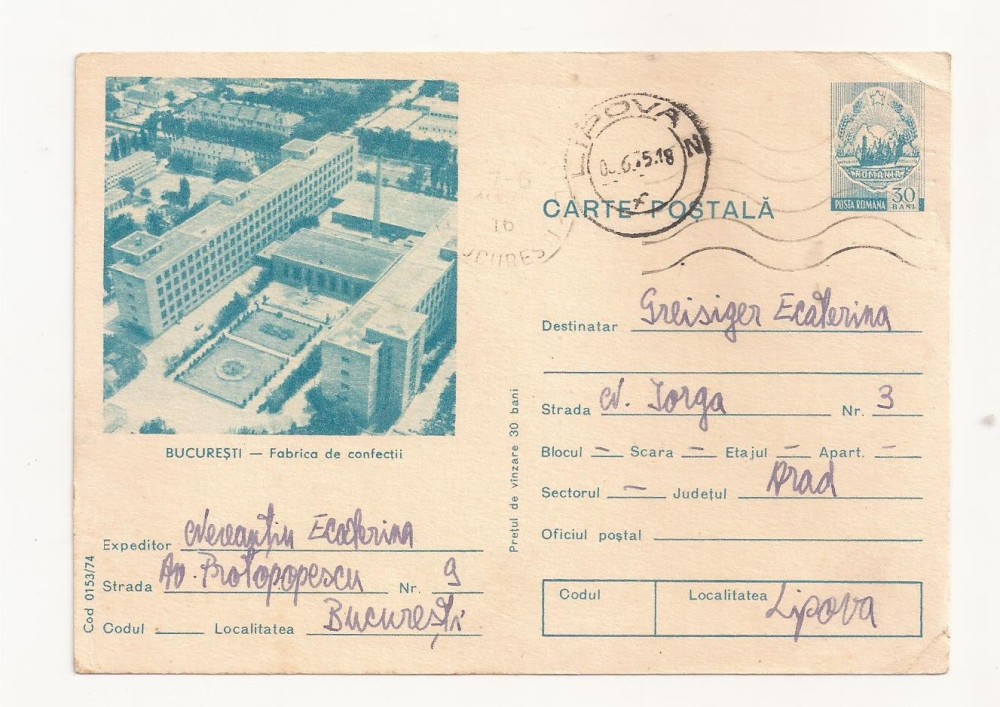 LIPOVA
6.75.18
CARTE POȘTALĂ
ROMANIA
POSTA ROMANA 30 BANI
Destinatar Greisiger Ecaterina
Strada N. Iorga Nr. 3
Blocul — Scara — Etajul — Apart. —
Sectorul — Județul Arad
Oficiul poștal
Codul Localitatea Lipova
Prețul de vînzare 30 bani
BUCUREȘTI — Fabrica de confecții
Expeditor Ecaterina
Strada Av. Protopopescu Nr. 9
Codul Localitatea București
Cod 0153/74